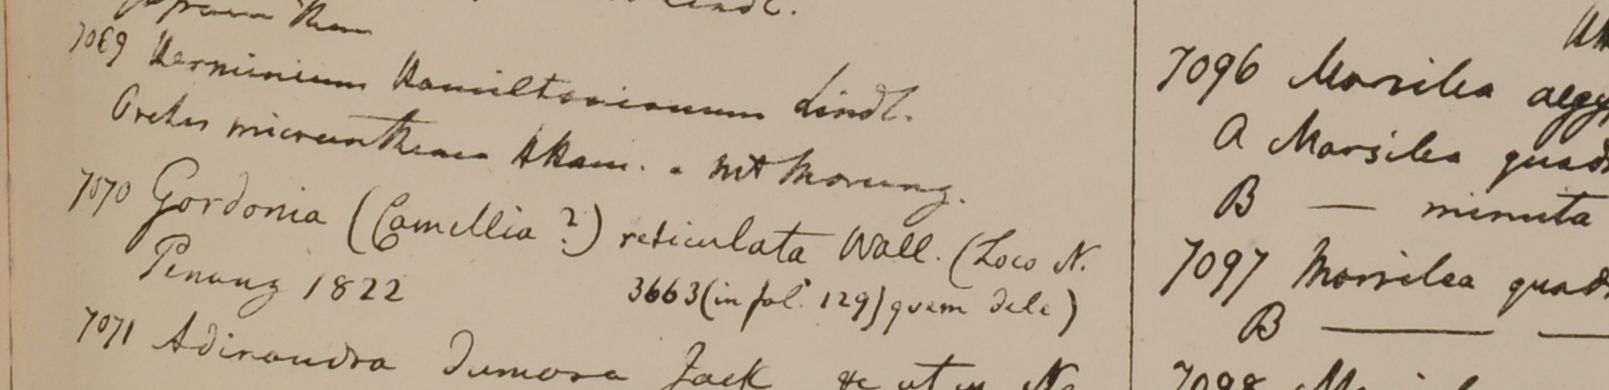 Lindl.
7069 Herminium Hamiltonianum Lindl.
Orchis micrantha HHam. - Mt Morung.
7070 Gordonia (Camellia ?) reticulata Wall. (Loco N.
Penang 1822 3663 (in fol. 129) quem dele)
7071 Adinandra dumosa Jack &c ut in N
7096 Marsilea aegy
A Marsilea quad
B — minuta
7097 Marsilea quad
B — —
7098